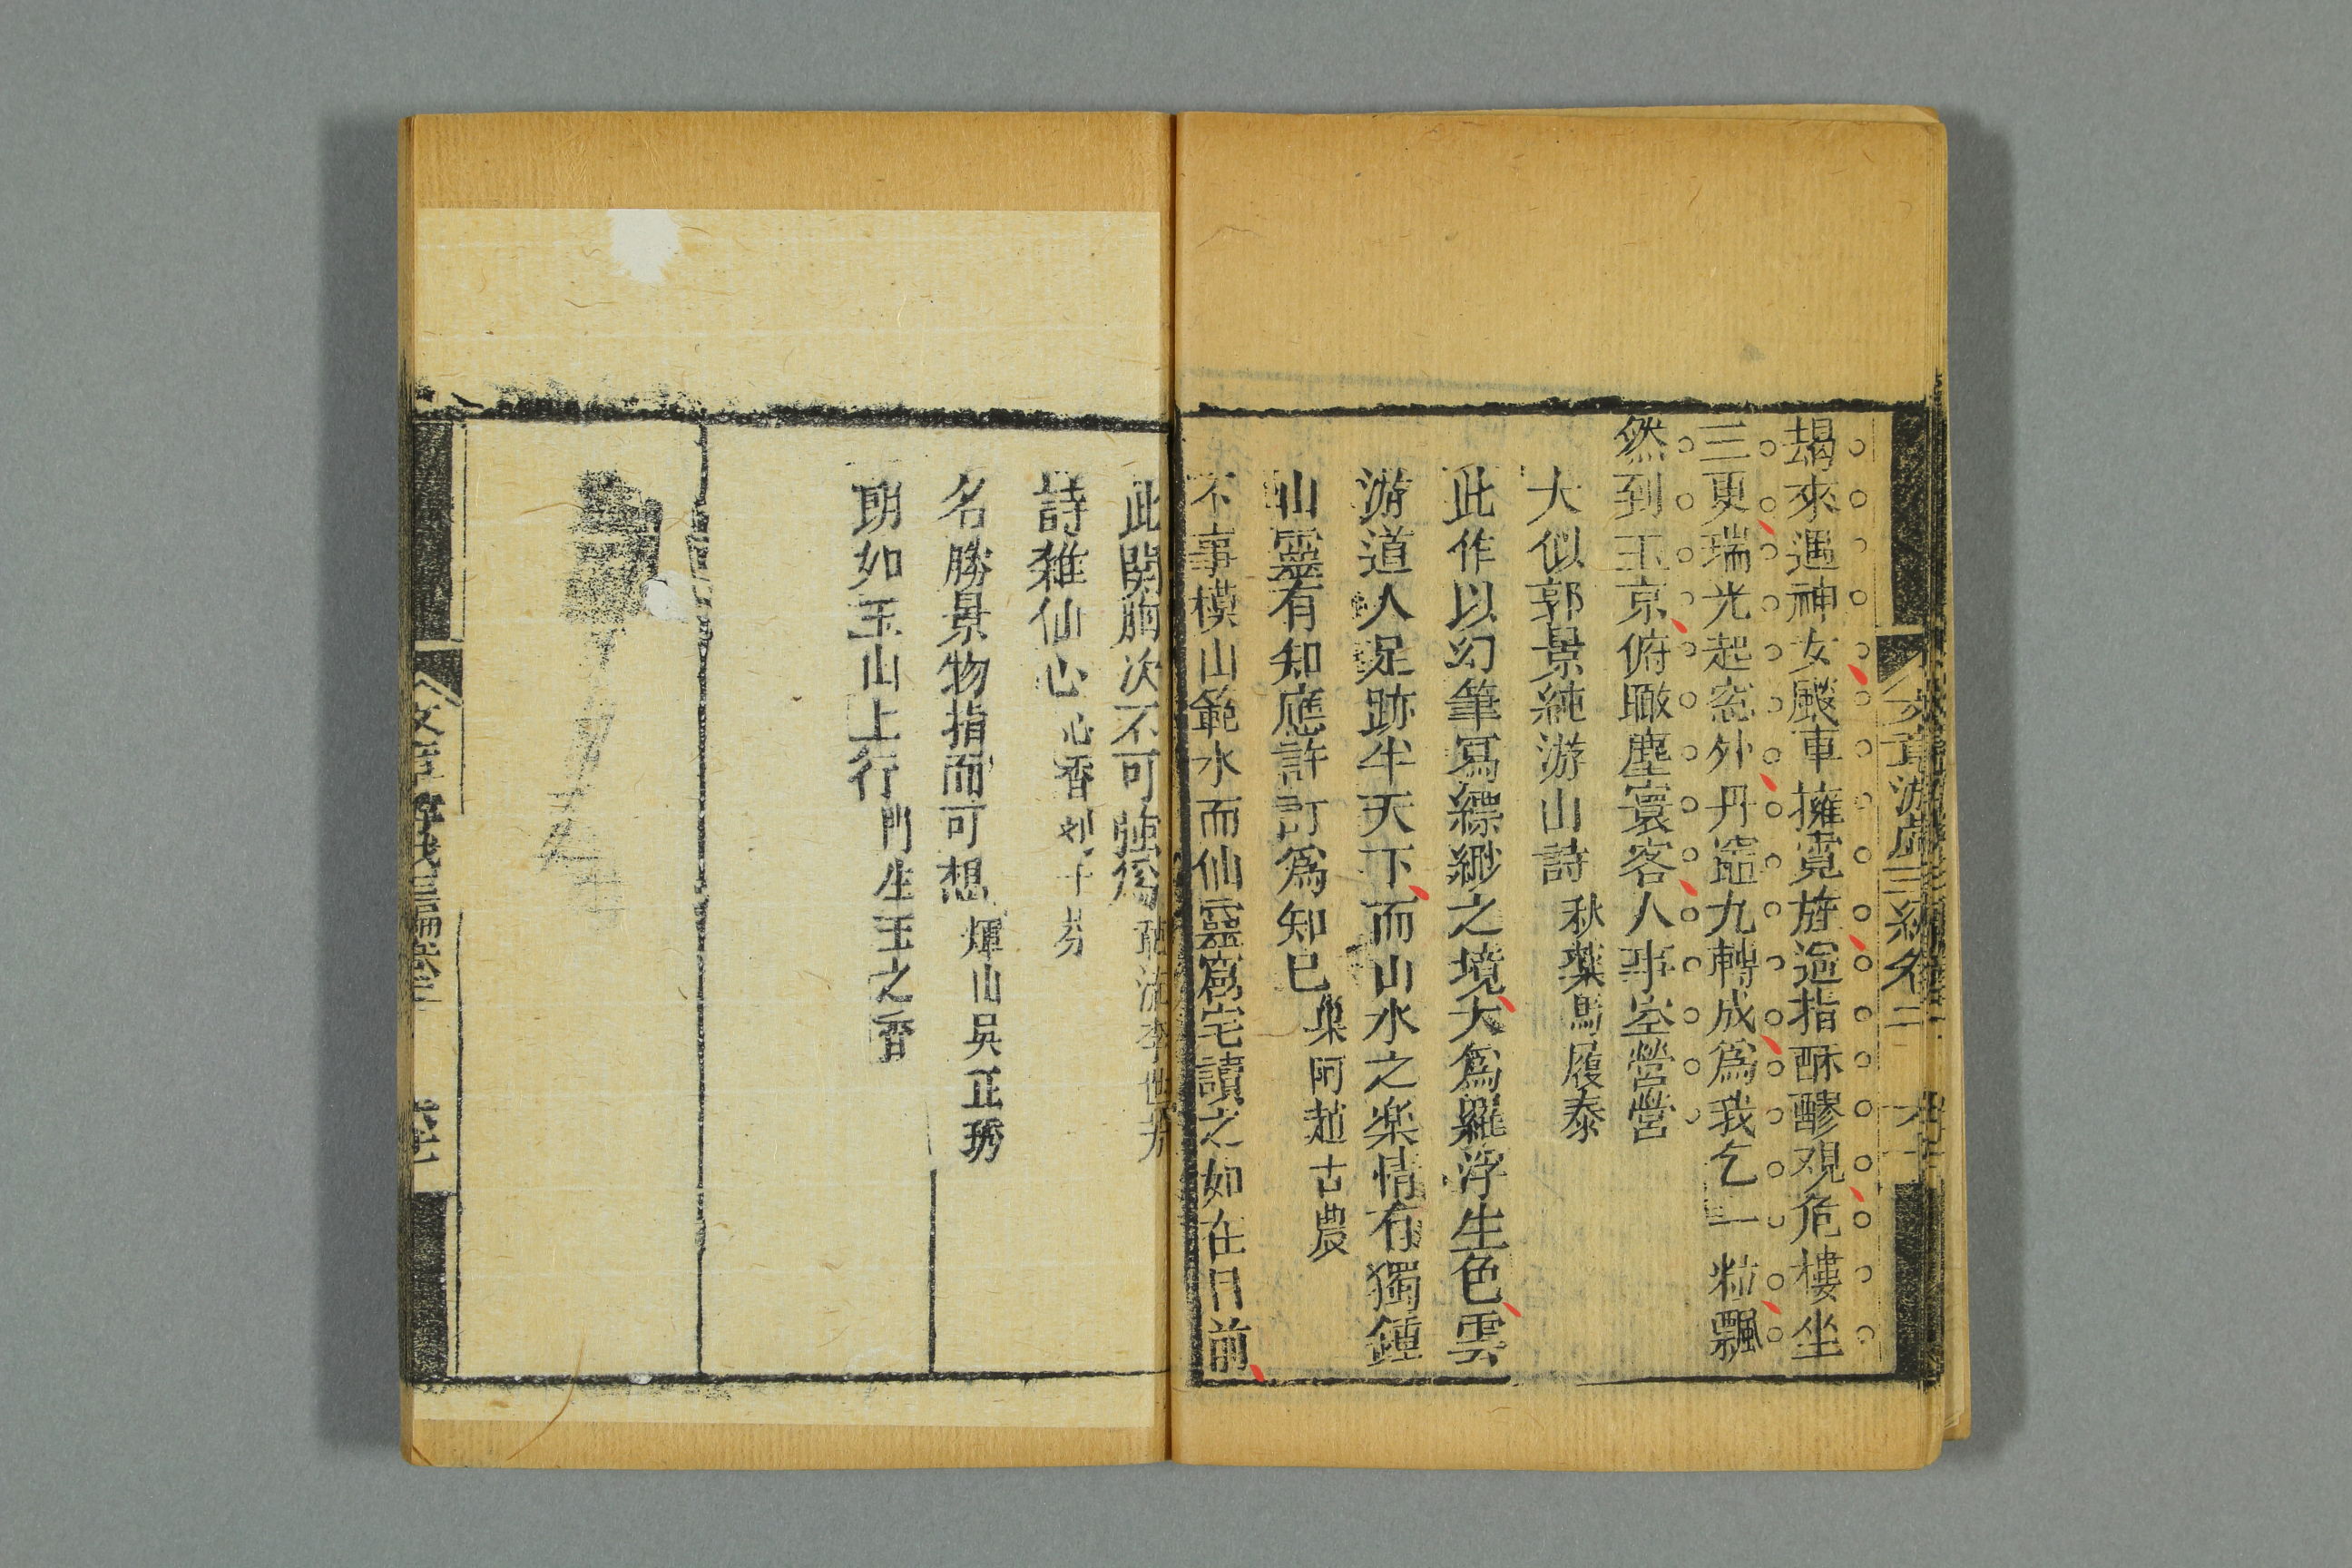 朅來遇神女飈車擁霓旌迤指酥醪觀危樓坐
三更瑞光起窓外丹竈九轉成爲我乞一粒飄
然到玉京俯瞰塵寰客人事空營營
大似郭景純游山詩 秋藥馬履泰
此作以幻筆寫縹緲之境大爲羅浮生色雲
游道人足跡半天下而山水之楽情有獨鍾
山靈有知應許訂爲知已 巢阿趙古農
不事模山範水而仙靈窟宅讀之如在目前
此関胸次不可強爲 李世芳
詩雜仙心 心香劉
名勝景物指而可想 煇山吳正琇
朗如玉山上行 門生王之香